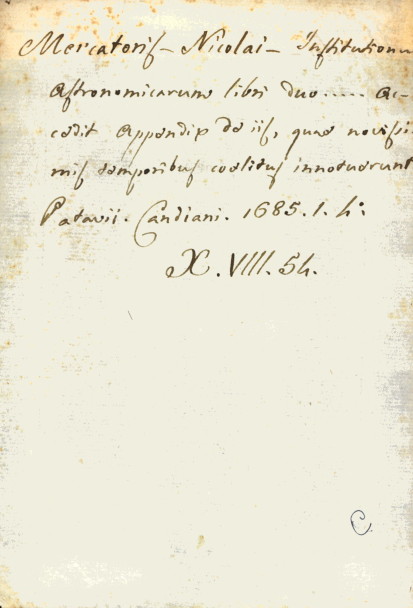 Mercatoris - Nicolai - Institutionu
Astronomicarum libri duo..... Ac-
cedit Appendix de iis, quae novissi
mis temporibus coelitus innotuerunt
Patavii. Candiani. 1685. 1. 4:
X. VIII. 54.
C.